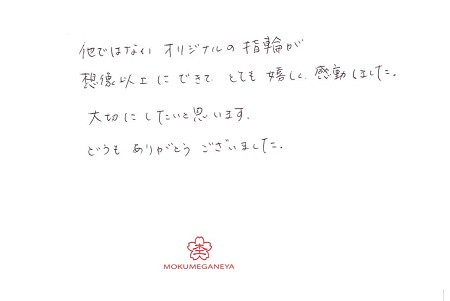 他ではない オリジナルの指輪が
想像以上にできて とても嬉しく、感動しました。
大切にしたいと思います。
どうも ありがとう ございました。
MOKUMEGANEYA